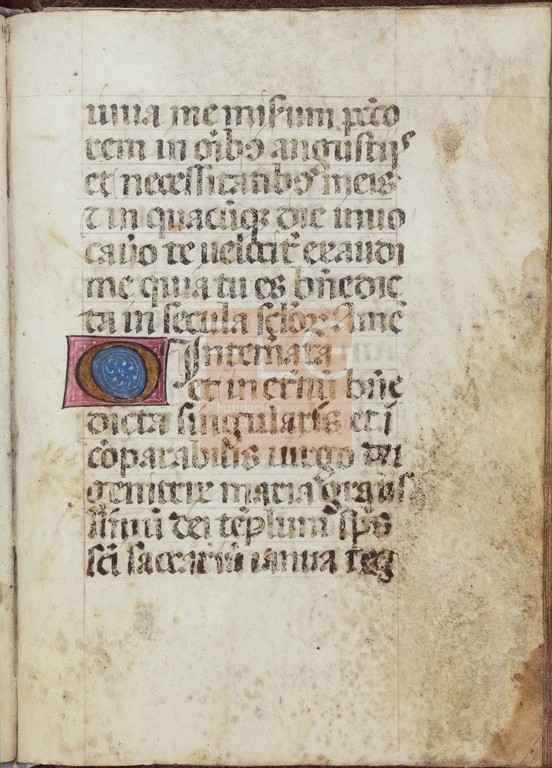 iuua me miserum p̄cto
rem in oībꝰ angustijs
et necessitatibꝰ meis
⁊ in quacūqꝫ die inuo
cauero te velocit̄ exaudi
me quia tu es bn̄edic
ta in secula sc̄lor̄ Amē
O Intem̄ata
et in et̄nū bn̄e
dicta singularis et ī
cōparabilis uirgo dei
genitrix maria gratis
simū dei tēplum sp̄s
sc̄i sacrariū ianua reg